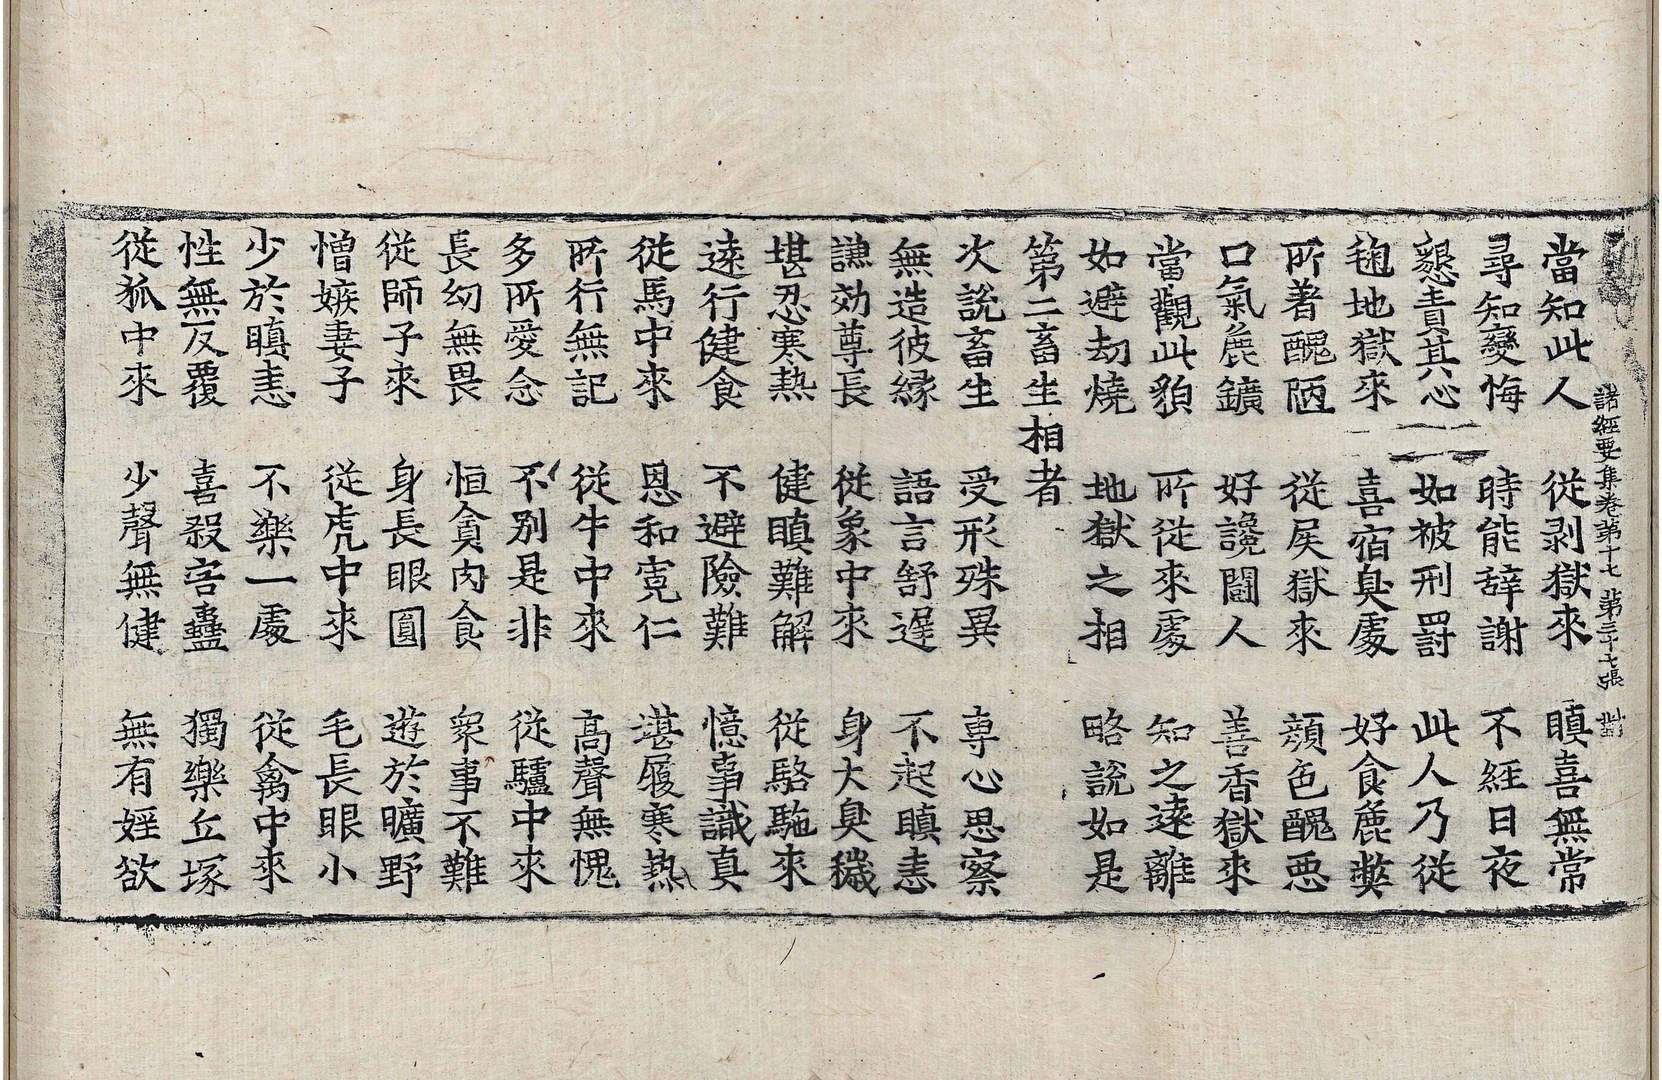 當知此人 從剥獄來 瞋喜無常
諸經要集卷第十七 第三十七張 對
尋知變悔 時能辝謝 不經日夜
懇責其心 如被刑罸 此人乃從
䵃地獄來 喜宿臭處 好食麁弊
所著醜陋 從屎獄來 顔色醜悪
口氣麁鑛 好讒鬪人 善香獄來
當觀此貌 所從來處 知之遠離
如避劫燒 地獄之相 略說如是
第二畜生相者
次說畜生 受形殊異 専心思察
無造彼緣 語言舒遲 不起瞋恚
謙効尊長 從象中來 身大臭穢
堪忍寒熱 健瞋難解 從駱駞來
遠行健食 不避險難 憶事識真
從馬中來 恩和寛仁 堪履寒熱
所行無記 從牛中來 高聲無愧
多所愛念 不別是非 從驢中來
長幼無畏 恒貪肉食 衆事不難
從師子來 身長眼圓 遊於曠野
憎嫉妻子 從虎中來 毛長眼小
少於瞋恚 不樂一處 從禽中來
性無反覆 喜殺害蠱 獨樂丘塚
從狐中來 少聲無健 無有婬欲